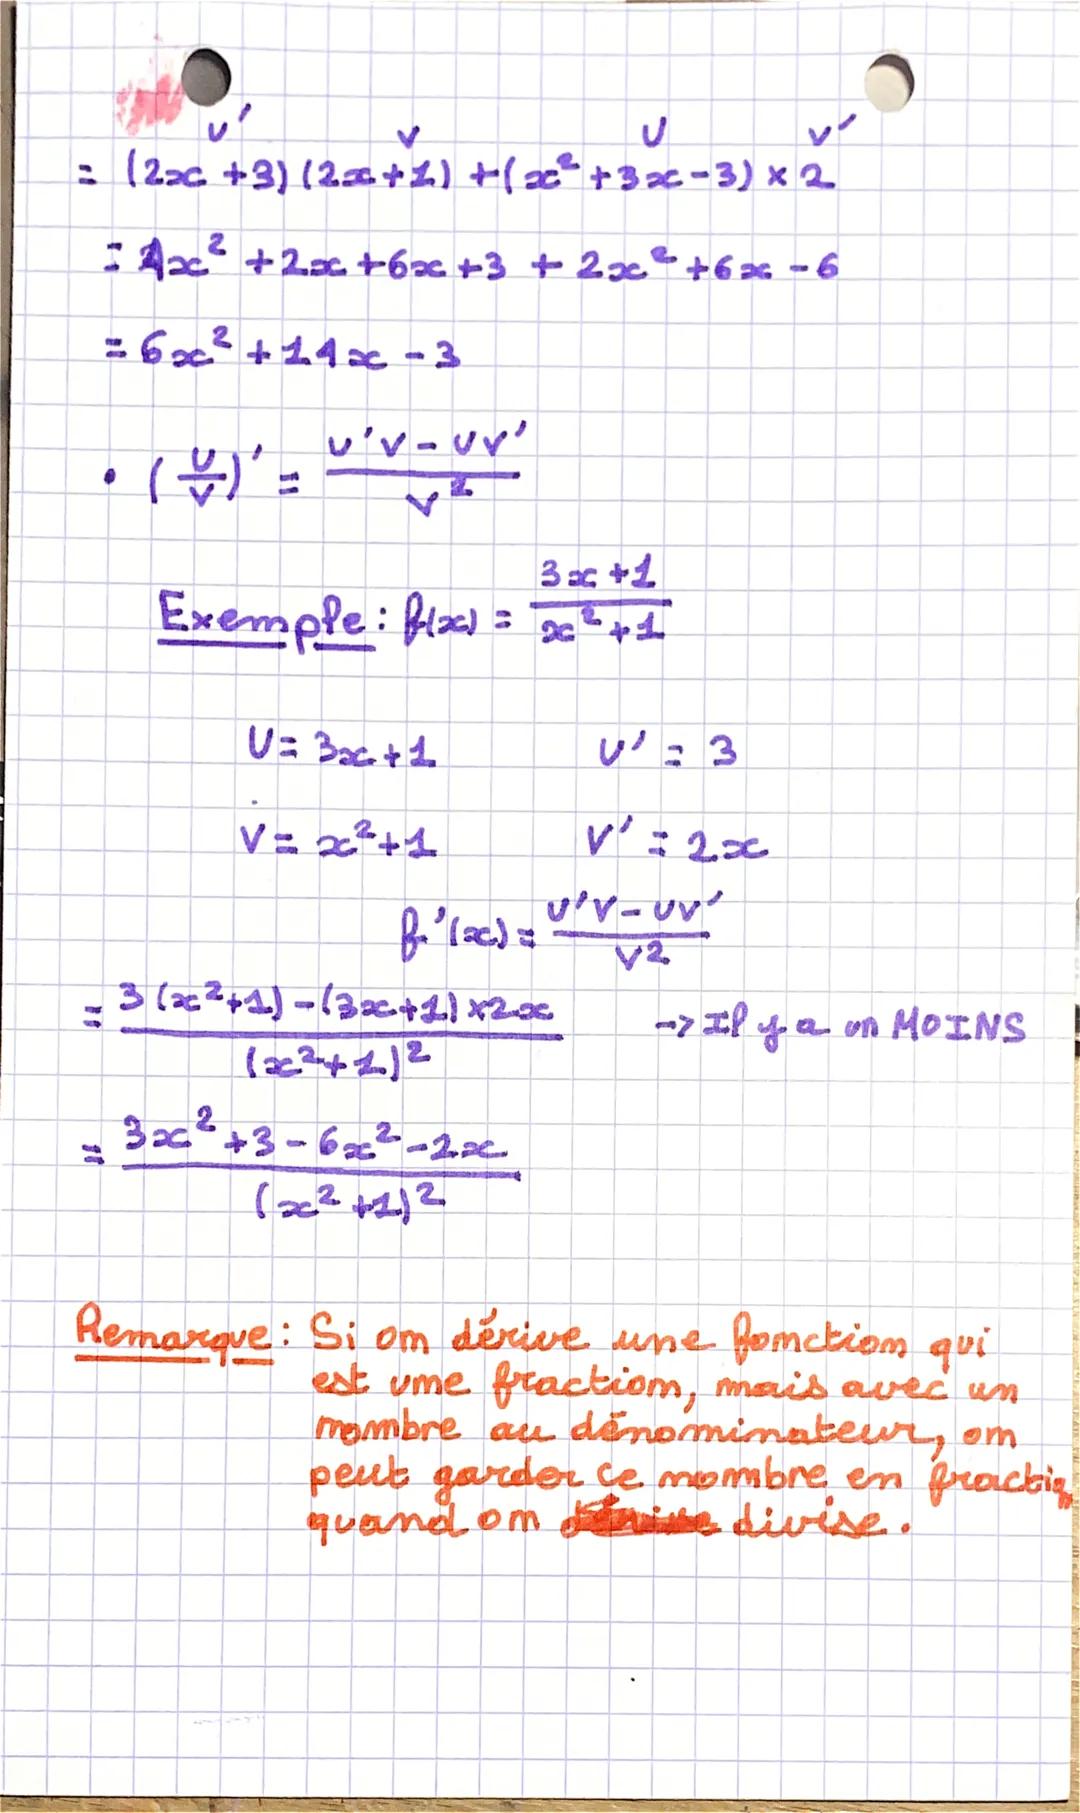 u' v u v'
= (2x + 3) (2x + 1) + (x² + 3x - 3) × 2
= 4x² + 2x + 6x + 3 + 2x² + 6x - 6
= 6x² + 14x - 3
• (u/v)' = (u'v - uv')/v²
Exemple : f(x) = (3x + 1)/(x² + 1)
U = 3x + 1 U' = 3
V = x² + 1 V' = 2x
f'(x) = (u'v - uv')/v²
= (3(x² + 1) - (3x + 1) × 2x)/(x² + 1)² -> Il y a un MOINS
= (3x² + 3 - 6x² - 2x)/(x² + 1)²
Remarque : Si on dérive une fonction qui
est une fraction, mais avec un
nombre au dénominateur, on
peut garder ce nombre en fraction
quand on divise.